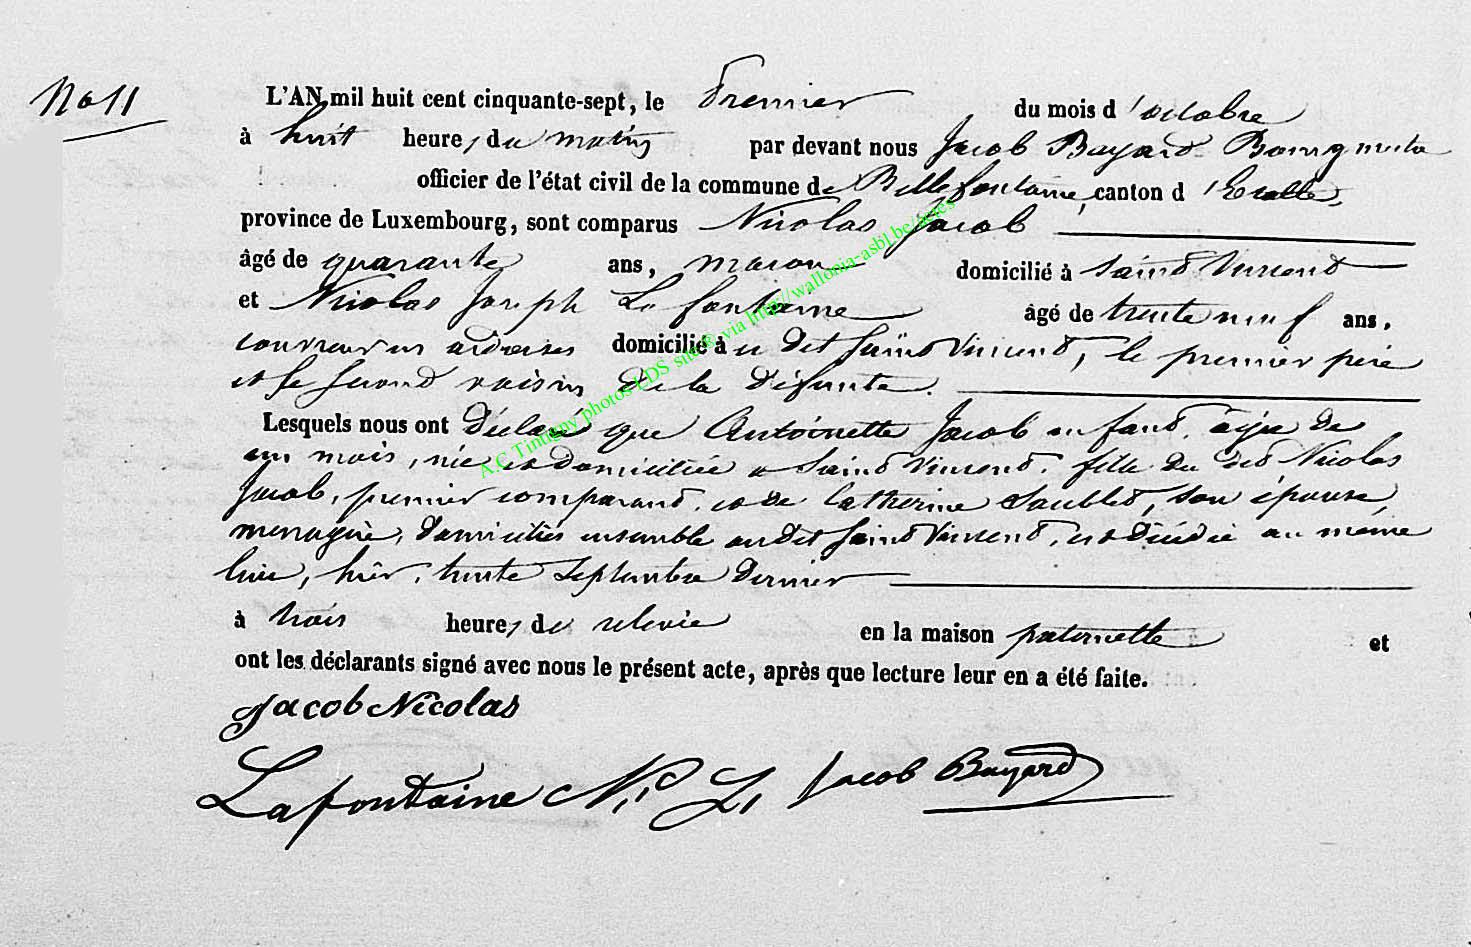 No 11
L'AN mil huit cent cinquante-sept, le Premier du mois d'octobre
à huit heures du matin par devant nous Jacob Bayard Bourgmestre
officier de l'état civil de la commune de Bellefontaine, canton d'Etalle,
province de Luxembourg, sont comparus Nicolas Jacob
âgé de quarante ans, macon domicilié à Saind Vincend
et Nicolas Joseph Lafontaine âgé de trente neuf ans,
couvreur en ardoises domicilié à u dit Saind Vincend, le premier père
et le second voisin de la défunte.
Lesquels nous ont déclaré que Antoinette Jacob enfand, âgée de
un mois, née et domiciliée a Saind Vincend, fille du dit Nicolas
Jacob, premier comparand, et de Catherine Saublet, son épouse
menagère, domiciliés ensemble au dit Saind Vincend, est décédée au même
lieu, hièr, trente Septembre dernier
à trois heures de relevée en la maison paternelle et
ont les déclarants signé avec nous le présent acte, après que lecture leur en a été faite.
Jacob Nicolas
Lafontaine N. J. Jacob Bayard
A.C Tintigny photos LDS sur ® via http://wallonia-asbl.be/actes